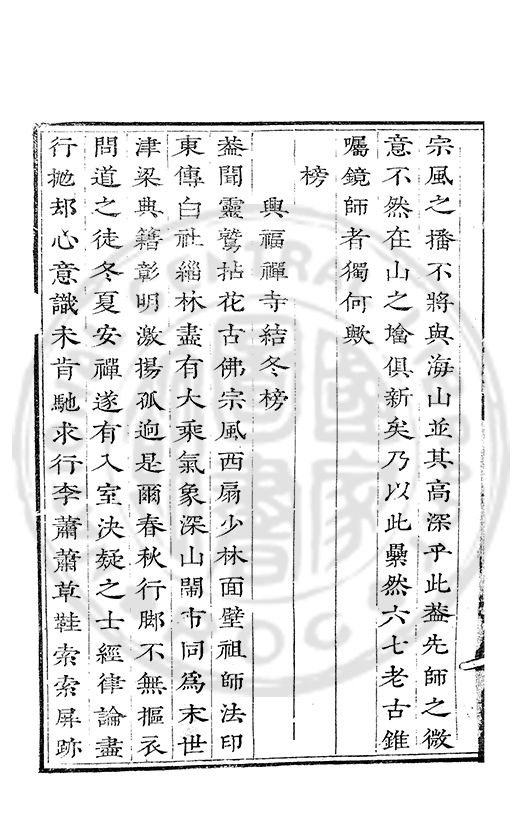 宗風之播不將與海山並其高深乎此葢先師之微
意不然在山之墖俱新矣乃以此纍然六七老古錐
囑鏡師者獨何歟
榜
興福禪寺結冬榜
葢聞靈鷲拈花古佛宗風西扇少林面壁祖師法印
東傳白社緇林盡有大乘氣象深山鬧市同爲末世
津梁典籍彰明激揚孤逈是爾春秋行脚不無摳衣
問道之徒冬夏安禪遂有入室決疑之士經律論盡
行抛却心意識未肯馳求行李蕭蕭草鞋索索屏跡